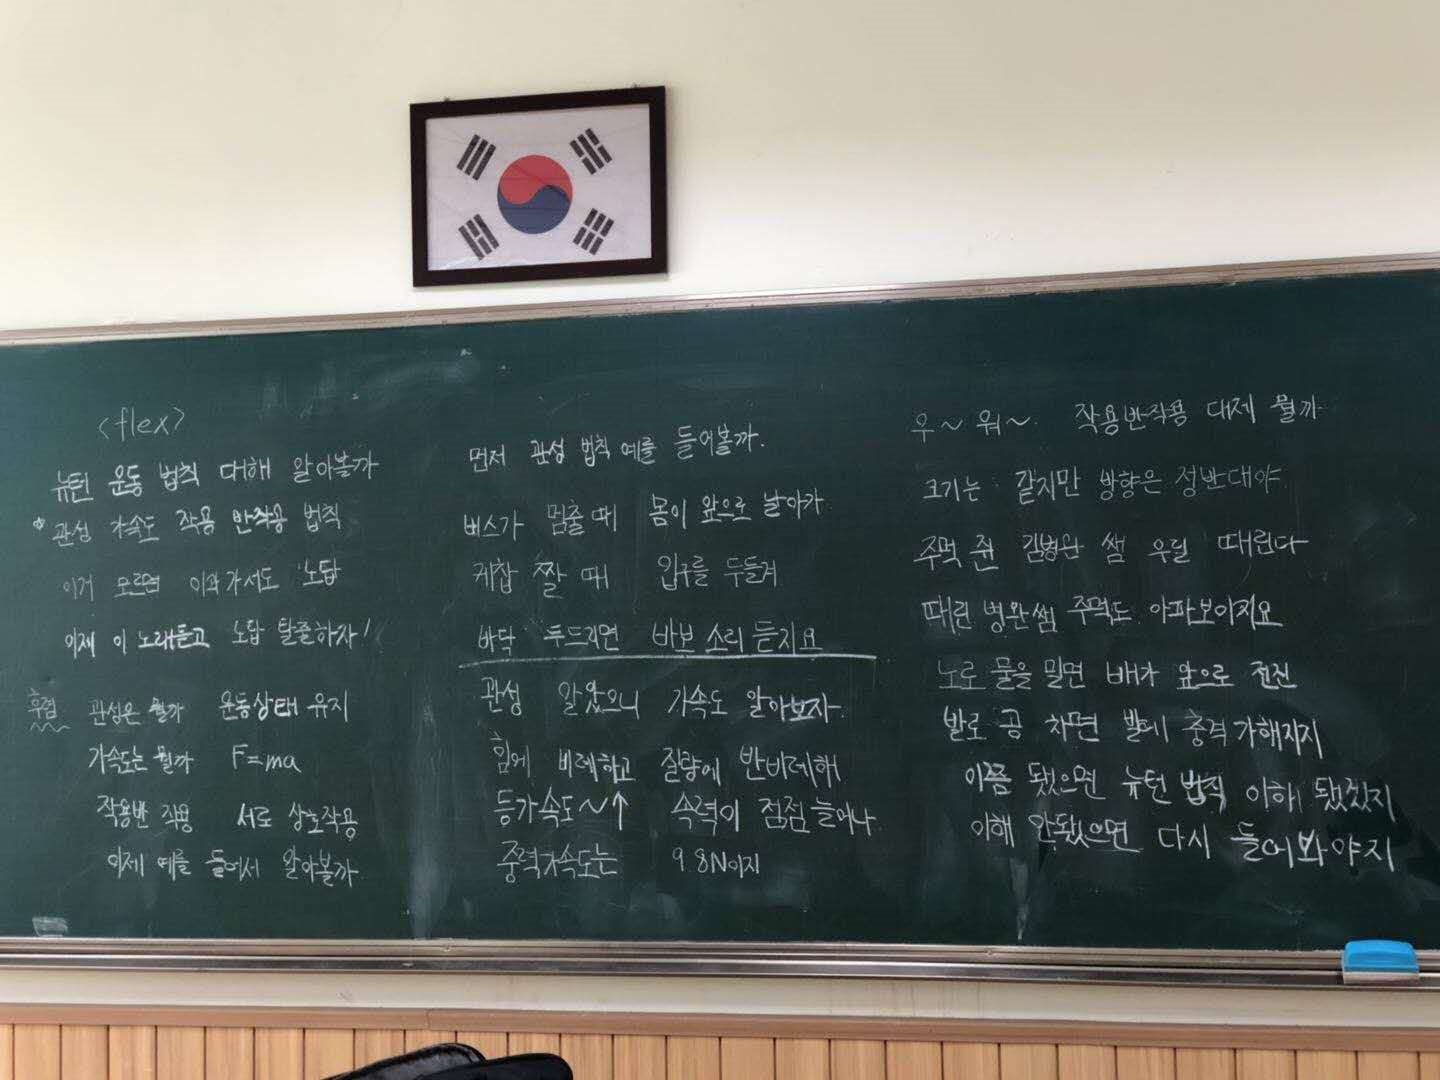 <flex>
뉴턴 운동 법칙 대해 알아볼까
* 관성 가속도 작용 반작용 법칙
이거 모르면 이과가서도 노답
이제 이 노래듣고 노답 탈출하자!
후렴 관성은 뭘까 운동상태 유지
가속도는 뭘까 F=ma
작용반 작용 서로 상호작용
이제 예를 들어서 알아볼까
먼저 관성 법칙 예를 들어볼까.
버스가 멈출 때 몸이 앞으로 날아가
케찹 짤 때 입구를 두들겨
바닥 두드리면 바보 소리 듣지요
관성 알았으니 가속도 알아보자.
힘에 비례하고 질량에 반비례해
등가속도~↑ 속력이 점점 늘어나
중력가속도는 9.8N이지
우~ 워~ 작용반작용 대체 뭘까
크기는 같지만 방향은 정반대야
주먹 쥔 김병완 쌤 우릴 때린다
때린 병완쌤 주먹도 아파보이지요
노로 물을 밀면 배가 앞으로 전진
발로 공 차면 발에 충격 가해지지
이쯤 됐으면 뉴턴 법칙 이해 됐겠지
이해 안됐으면 다시 들어봐야지